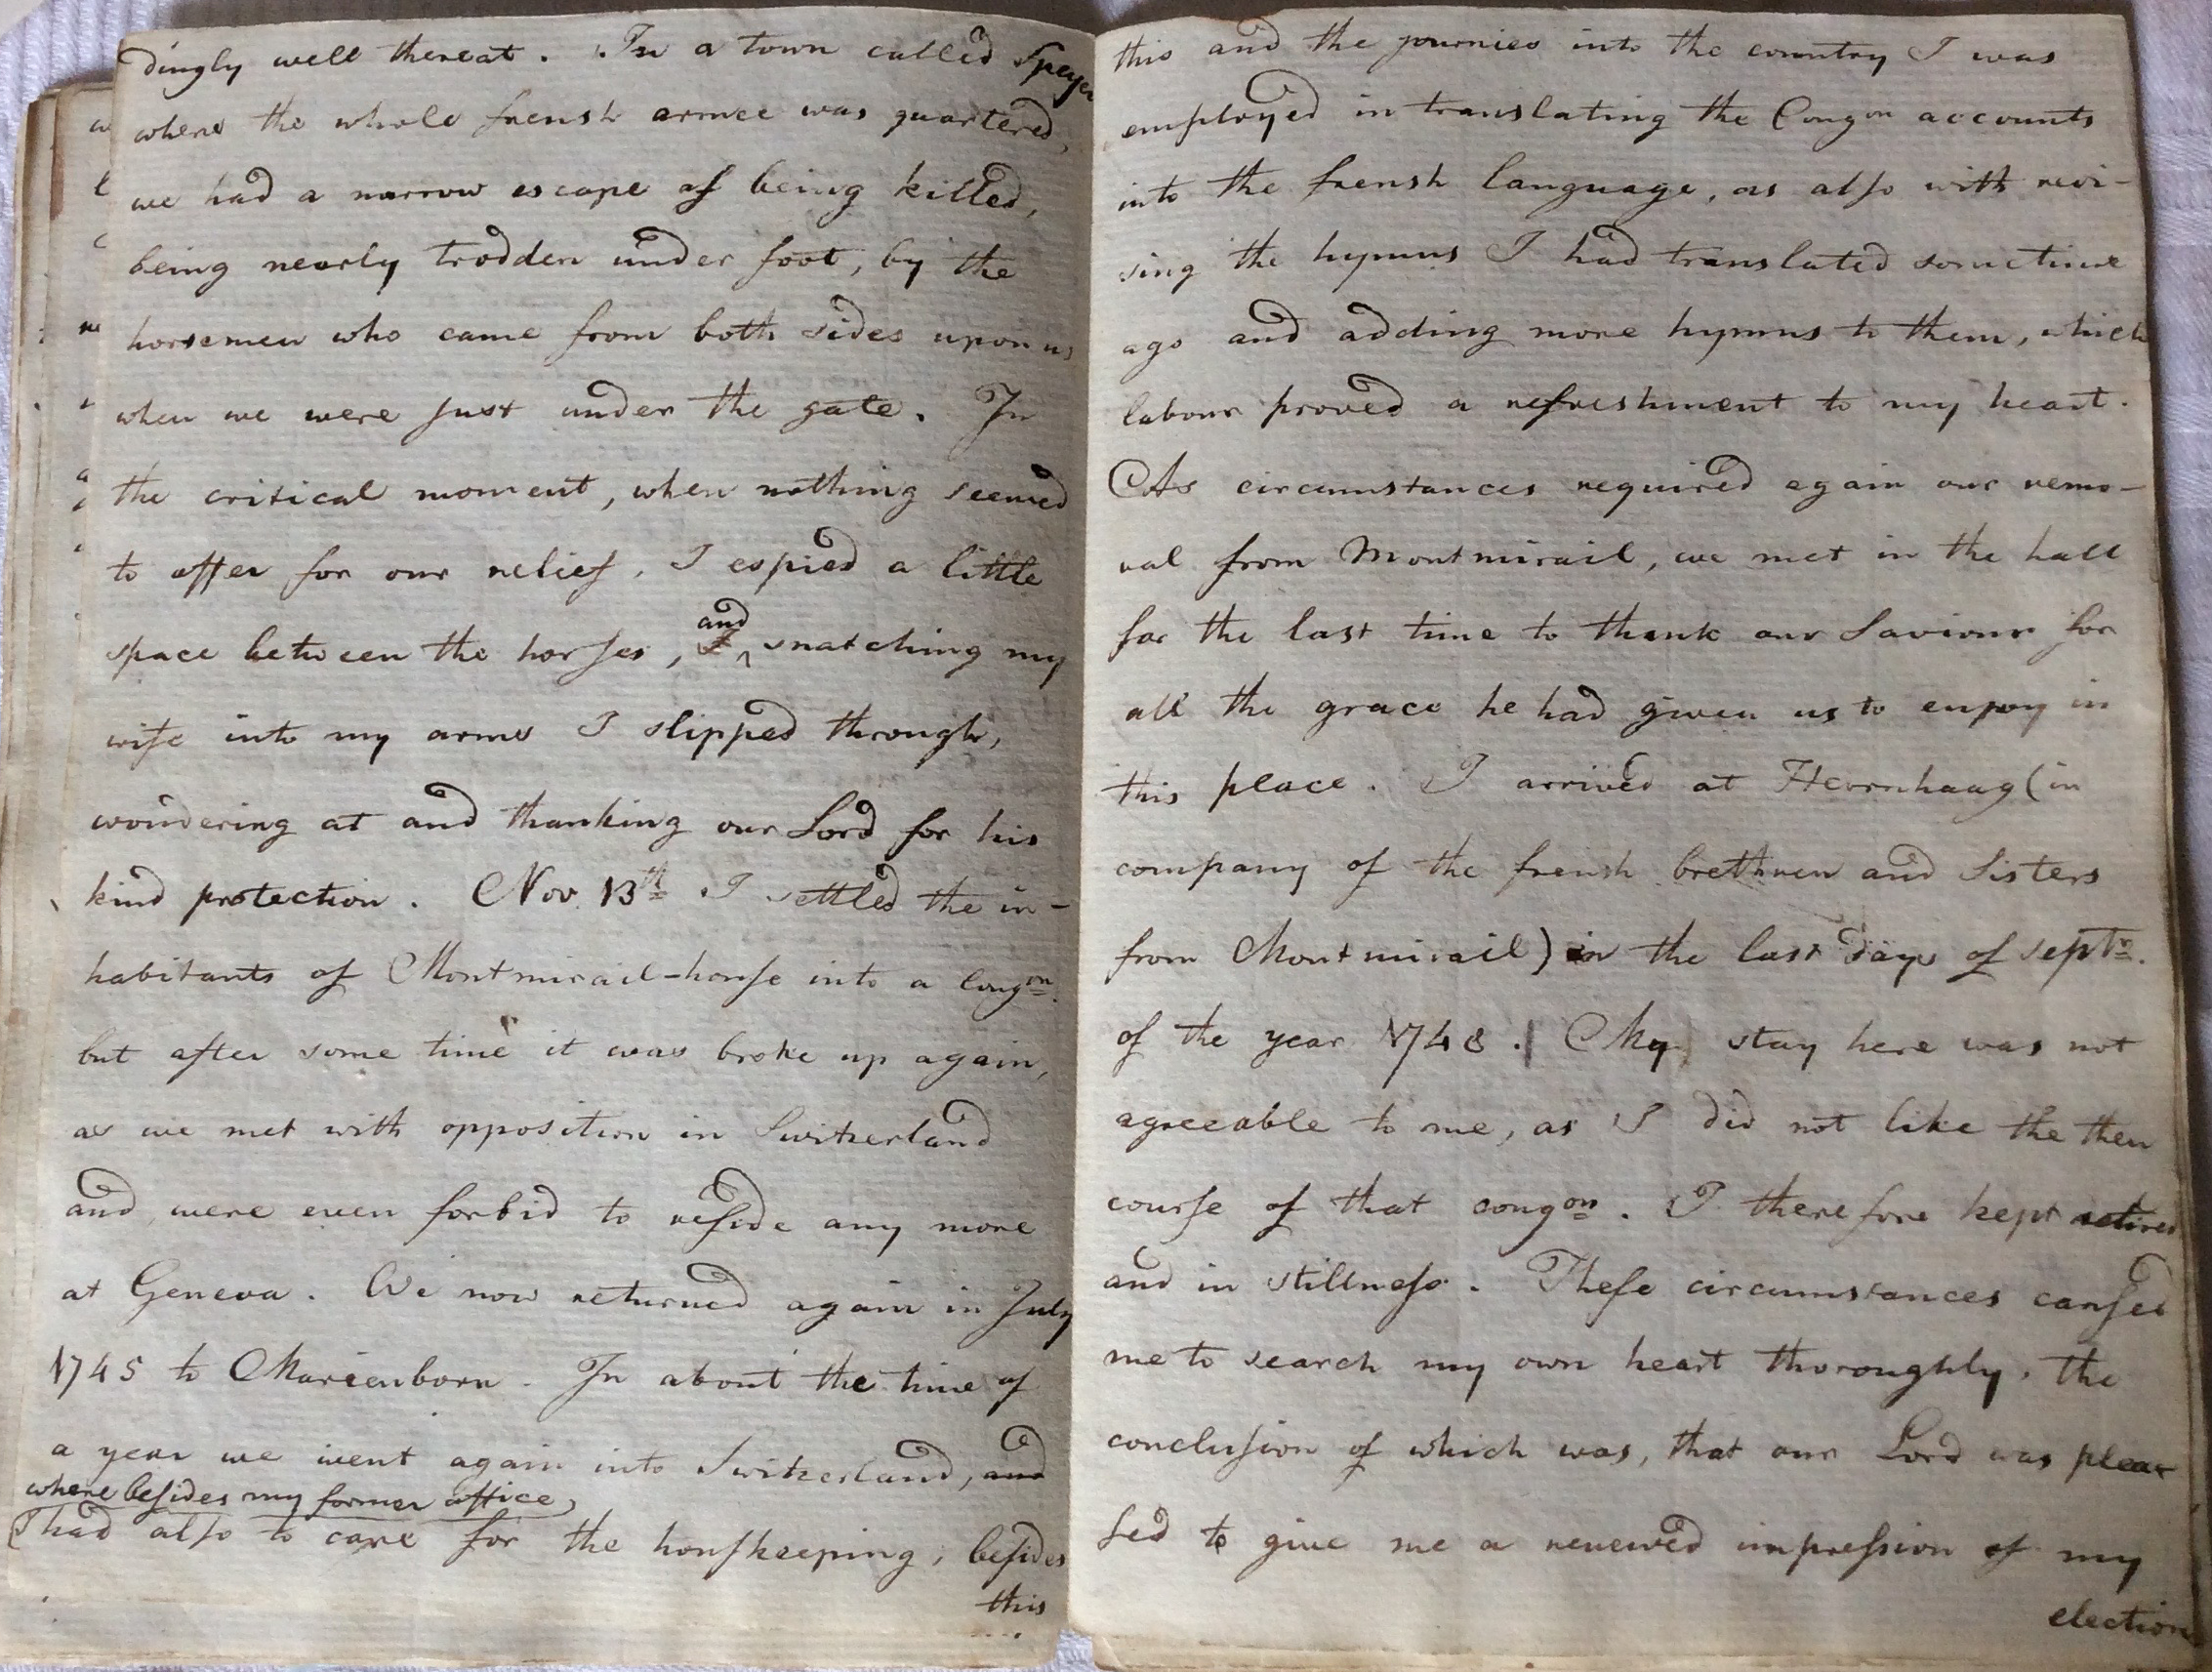 dingly well thereat. In a town called Speyer
where the whole frensh armee was quartered,
we had a narrow escape of being killed,
being nearly trodden under foot, by the
horsemen who came from both sides upon us
when we were just under the gate. In
the critical moment, when nothing seemed
to offer for our relief, I espied a little
space between the horses, and snatching my
wife into my arms I slipped through,
wondering at and thanking our Lord for his
kind protection. Nov 13th I settled the in-
habitants of Montmirail-house into a congon.
but after some time it was broke up again,
as we met with opposition in Switzerland
and were even forbid to reside any more
at Geneva. We now returned again in July
1745 to Marienborn. In about the time of
a year we went again into Switzerland, and
where besides my former office,
I had also to care for the houskeeping, besides
this
this and the journies into the country I was
employed in translating the Congon accounts
into the frensh language, as also with revi-
sing the hymns I had translated sometime
ago and adding more hymns to them, which
labour proved a refreshment to my heart.
As circumstances required again our remo-
val from Montmirail, we met in the hall
for the last time to thank our Saviour for
all the grace he had given us to enjoy in
this place. I arrived at Herrnhaag (in
company of the frensh brethren and Sisters
from Montmirail) in the last days of septr.
of the year 1748. My stay here was not
agreeable to me, as I did not like the then
course of that congon. I therefore kept retired
and in stillness. These circumstances caused
me to search my own heart thoroughly, the
conclusion of which was, that our Lord was plea
sed to give me a renewed impression of my
election